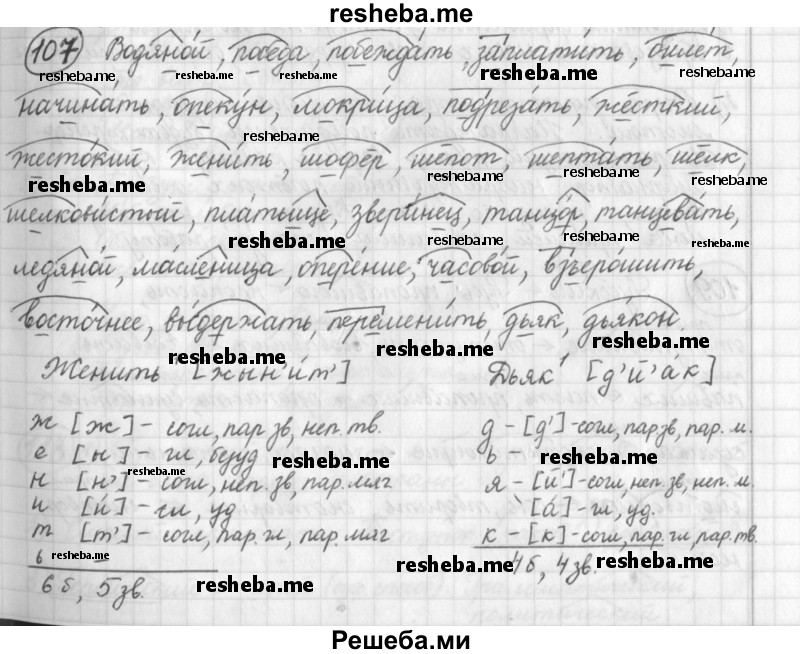 resheba.me
107 Водяной, победа, побеждать, заплатить, билет,
resheba.me resheba.me resheba.me resheba.me
начинать, опекун, мокрица, подрезать, жёсткий,
resheba.me resheba.me
жестокий, женить, шофёр, шёпот, шептать, шёлк,
resheba.me resheba.me resheba.me resheba.me
шелковистый, платьице, зверинец, танцор, танцевать,
resheba.me resheba.me resheba.me
ледяной, масленица, оперение, часовой, взъерошить,
resheba.me resheba.me
восточнее, выдержать, переменить, дьяк, дьякон.
resheba.me resheba.me
Женить [жын'ит'] Дьяк [д'й'ак]
ж [ж] – согл, пар зв, неп. тв. д – [д'] – согл, пар зв, пар. м.
е [ы] – гл, безуд ь
resheba.me resheba.me resheba.me
н [н'] – согл, неп. зв, пар. мяг я – [й'] – согл, неп. зв, неп. м.
и [и́] – гл, уд [а́] – гл, уд.
resheba.me resheba.me
т [т'] – согл, пар. гл, пар. мяг к – [к] – согл, пар. гл, пар. тв.
ь resheba.me
6 б, 5 зв. 4 б, 4 зв.
resheba.me resheba.me
Решеба.ми